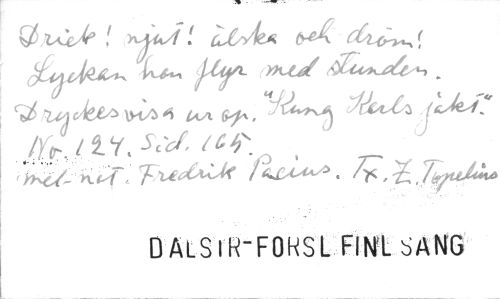 Drick! njut! älska och dröm!
Lyckan han flyr med stunden.
Dryckesvisa ur op. "Kung Karls jakt".
No. 124. Sid. 165.
mel-not. Fredrik Pacius. Tx. Z. Topelius
DALSTR-FORSL FINL SÅNG